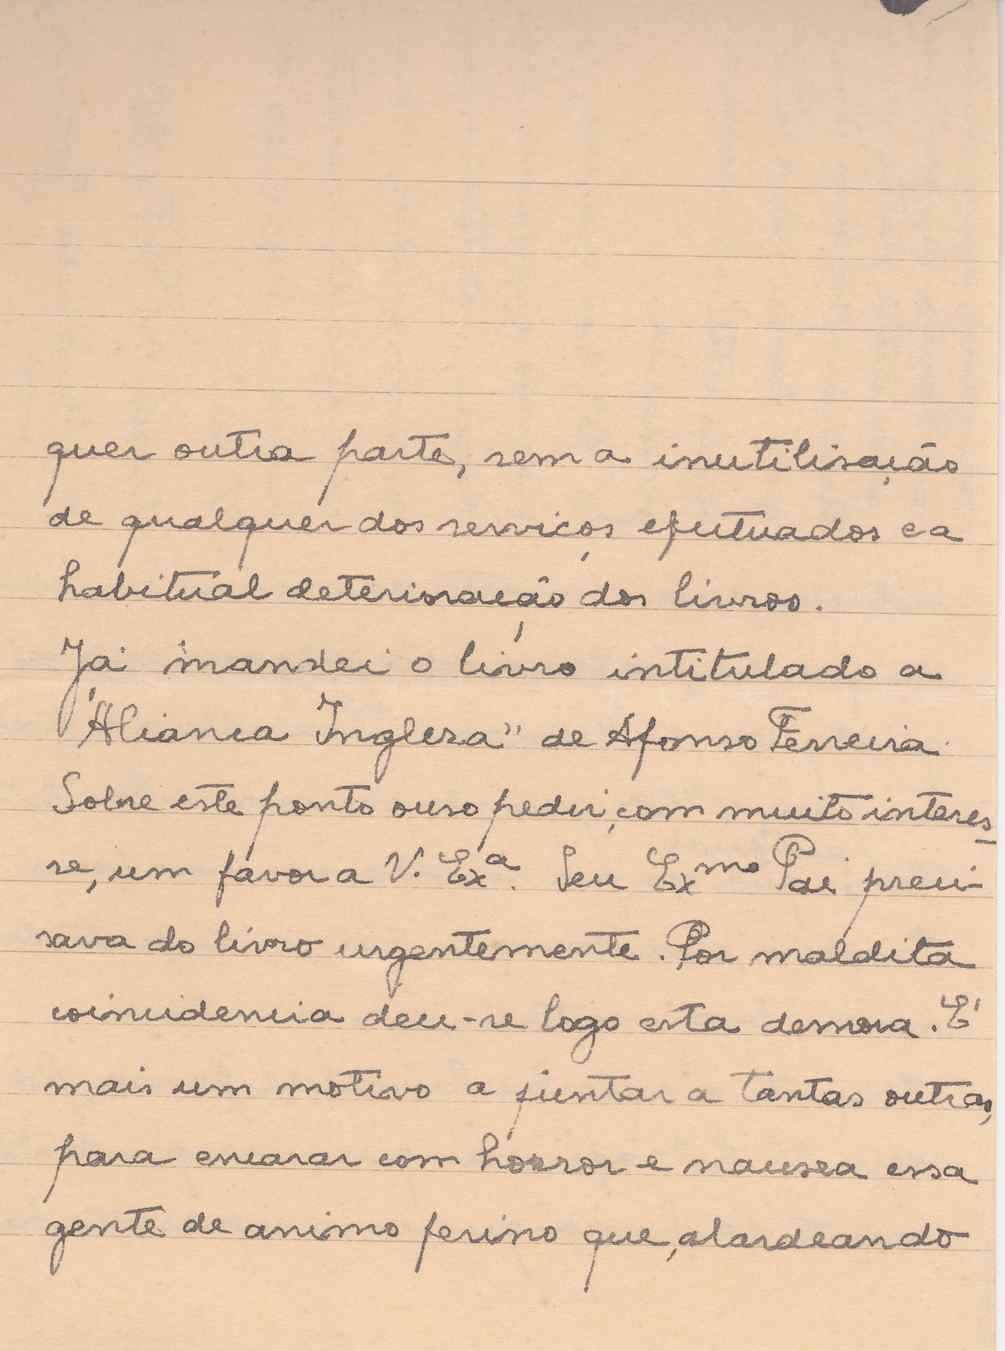 quer outra parte, sem a inutilisação
de qualquer dos serviços efetuados e a
habitual deterioração dos livros.
Já mandei o livro intitulado a
"Aliança Inglesa" de Afonso Ferreira.
Sobre este ponto ouso pedir, com muito interes-
se, um favor a V. Exª. Seu Exmo Pai preci-
sava do livro urgentemente. Por maldita
coincidencia deu-se logo esta demora. É
mais um motivo a juntar a tantas outras,
para encarar com horror e nausea essa
gente de animo ferino que, alardeando